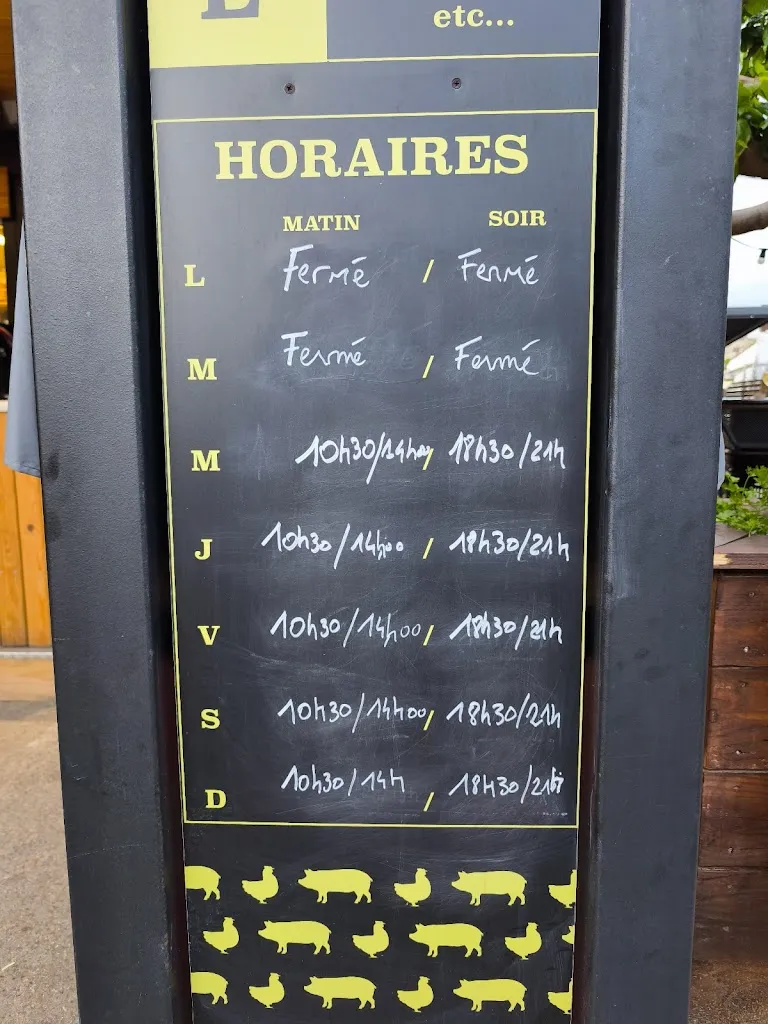 etc...
HORAIRES
MATIN SOIR
L Fermé / Fermé
M Fermé / Fermé
M 10h30/14h00 / 18h30/21h
J 10h30/14h00 / 18h30/21h
V 10h30/14h00 / 18h30/21h
S 10h30/14h00 / 18h30/21h
D 10h30/14h / 18h30/21h